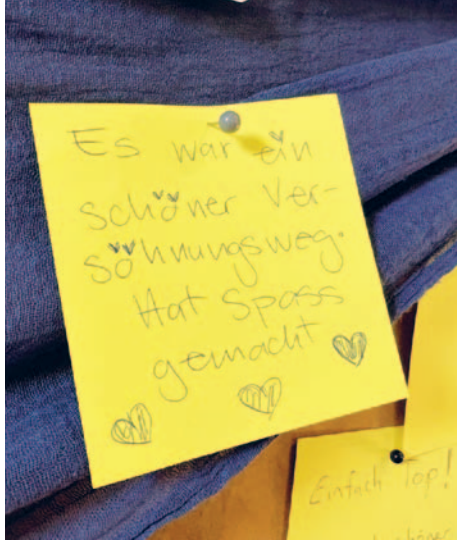 Es war ein
schöner Ver-
söhnungsweg.
Hat Spass
gemacht
Einfach Top!